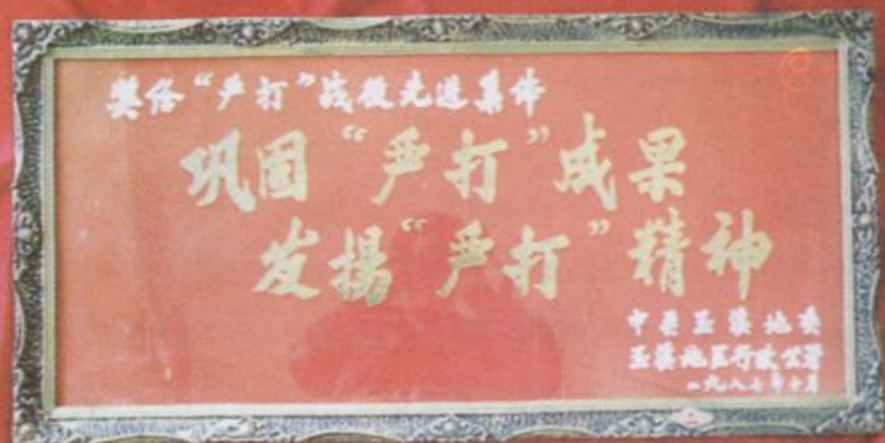 奖给“严打”战役先进集体
巩固“严打”成果
发揚“严打”精神
中共玉溪地委
玉溪地区行政公署
一九八七年十月